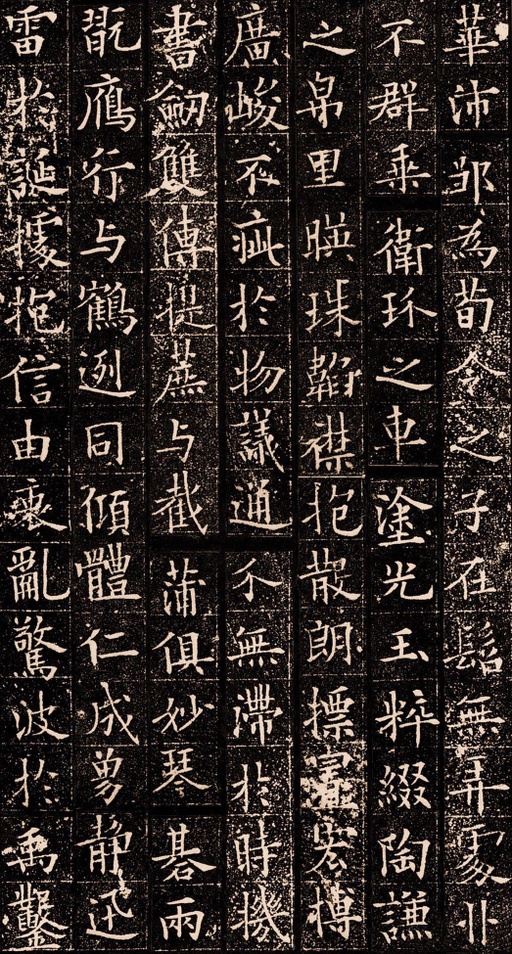 華沛邹為荀令之子在髫無弄處丱
不群乘衛玠之車塗光玉粹綴陶謙
之帛里暎珠韜襟抱散朗摽寓宏博
廣峻不疵於物議通介無滯於時機
書劒雙傳提蔗与截蒲俱妙琴碁兩
翫鴈行与鶴迾同傾體仁成勇静迅
雷於誕據抱信由衷亂驚波於禹鑿